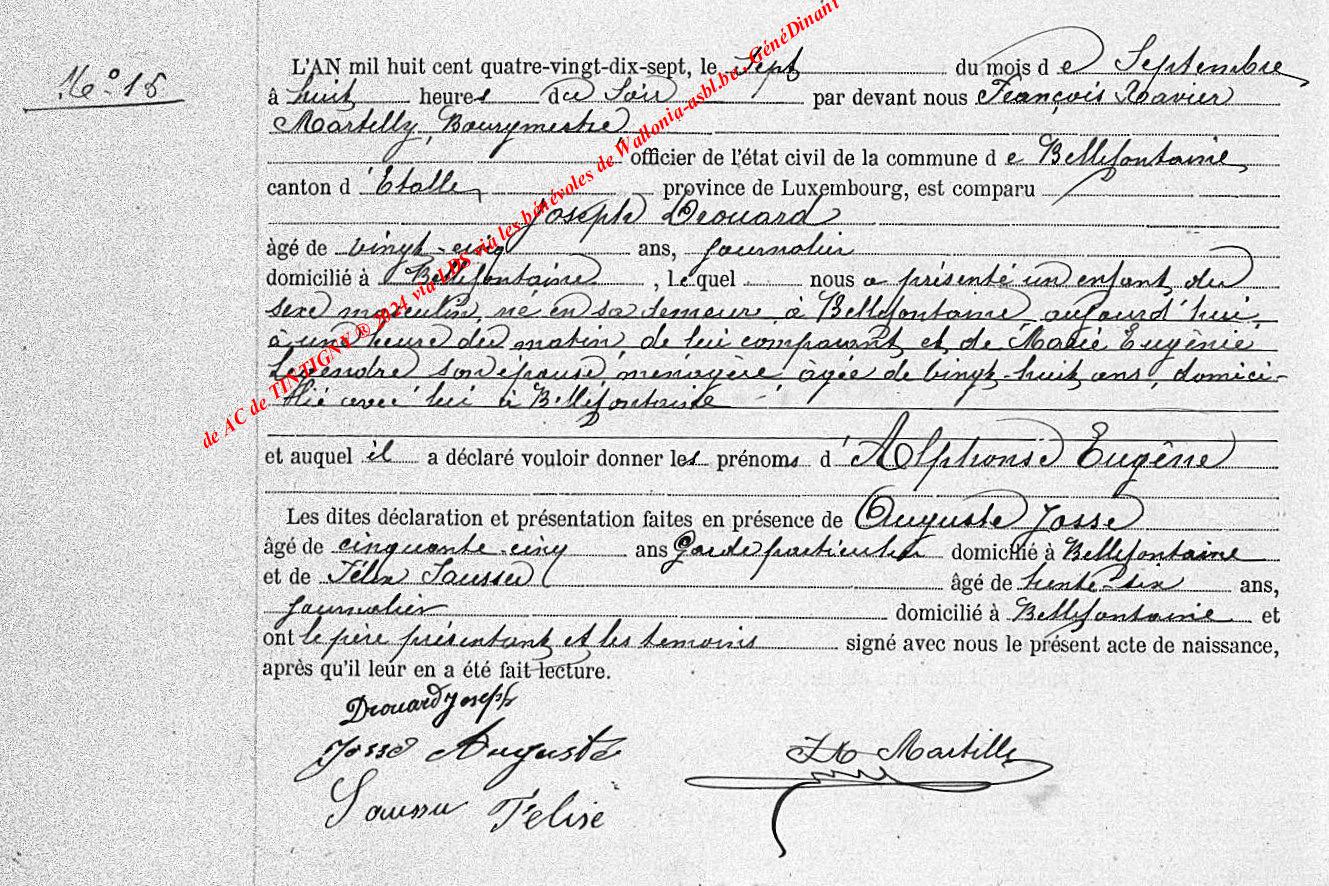 N° 15
L'AN mil huit cent quatre-vingt-dix-sept, le Sept du mois de Septembre
à huit heures du Soir par devant nous François Xavier
Martilly, Bourgmestre,
officier de l'état civil de la commune de Bellefontaine,
canton d'Etalle, province de Luxembourg, est comparu
Joseph Drouard
âgé de vingt-cinq ans, journalier
domicilié à Bellefontaine, Lequel nous a présenté un enfant du
sexe masculin, né en sa demeure à Bellefontaine, aujourd'hui,
à une heure du matin, de lui comparant et de Marie Eugènie
Legendre son épouse, ménagère, âgée de vingt-huit ans, domici-
liée avec lui à Bellefontaine
et auquel il a déclaré vouloir donner les prénoms d'Alphonse Eugène
Les dites déclaration et présentation faites en présence de Auguste Josse
âgé de cinquante-cinq ans Garde particulier domicilié à Bellefontaine
et de Félix Saussu âgé de trente-six ans,
journalier domicilié à Bellefontaine et
ont le père présentant et les témoins signé avec nous le présent acte de naissance,
après qu'il leur en a été fait lecture.
Drouard Joseph
Josse Auguste
FX Martilly
Saussu Felise
de AC de TINTIGNY ® 2024 via LDS via les bénévoles de Wallonia-asbl.be, GénéDinant